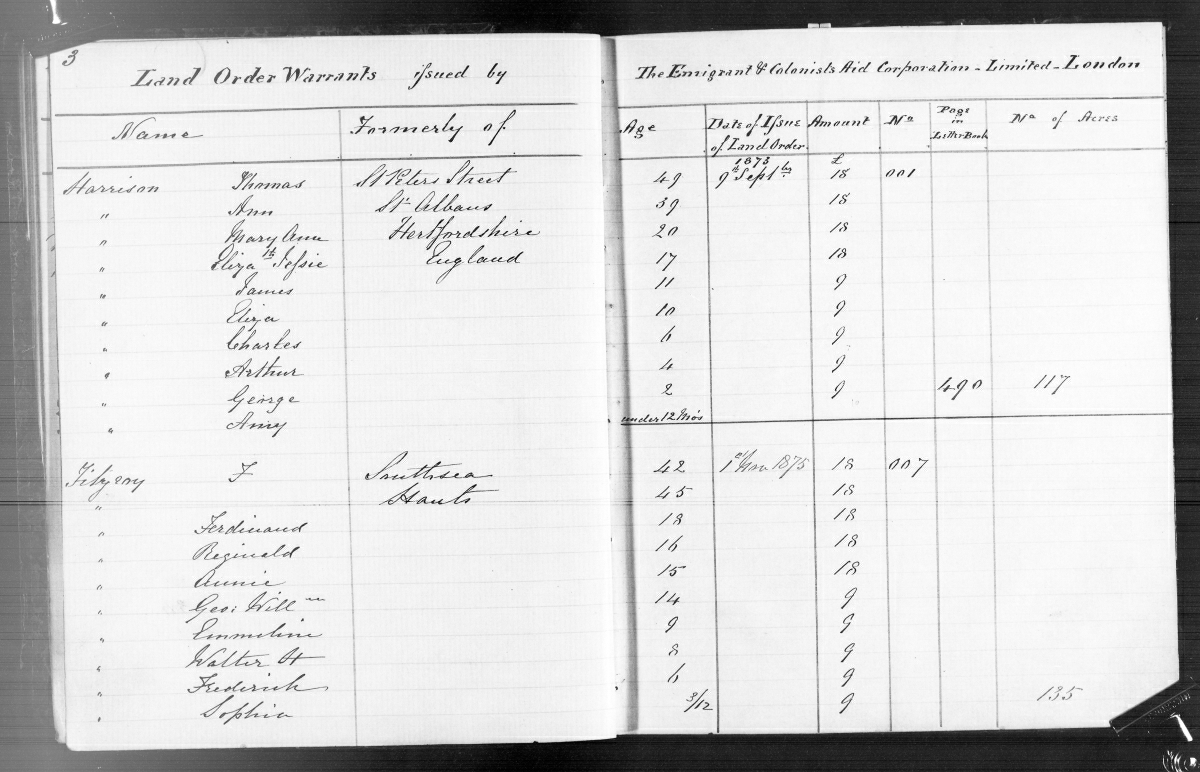 3
Land Order Warrants issued by The Emigrant & Colonists Aid Corporation - Limited - London
Name Formerly of Age Date of Issue of Land Order Amount No Page in Letter Book No of Acres
1873 £
Harrison Thomas St Peters Street 49 9th Septbr 18 001
" Ann St Albans 39 18
" Mary Ann Hertfordshire 20 18
" Eliza Jessie England 17 18
" James 11 9
" Eliza 10 9
" Charles 6 9
" Arthur 4 9
" George 2 9 490 117
" Amy under 12 Mos
Fitzroy F Southsea 42 1st Nov 1875 18 007
" Hants 45 18
" Ferdinand 18 18
" Reginald 16 18
" Annie 15 18
" Geo: Willm 14 9
" Emmeline 9 9
" Walter H 8 9
" Frederick 6 9
" Sophia 3/12 9 135